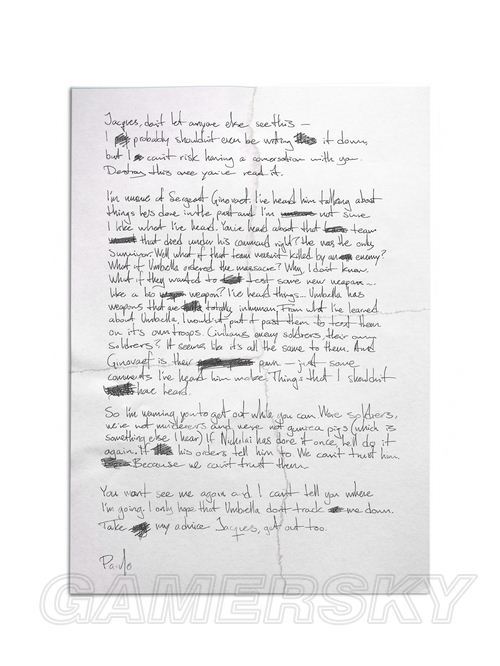 Jacques, don't let anyone else see this —
I probably shouldn't even be writing it down,
but I can't risk having a conversation with you.
Destroy this once you've read it.
I'm unsure of Sergeant Ginovaef. I've heard him talking about
things he's done in the past and I'm not sure
I like what I've heard. You've heard about that team
that died under his command right? He was the only
survivor. Well what if that team wasn't killed by an enemy?
What if Umbrella ordered the massacre? Why, I don't know.
What if they wanted to test some new weapon...
like a bio weapon? I've heard things... Umbrella has
weapons that are totally inhuman. From what I've learned
about Umbrella, I wouldn't put it past them to test them
on it's own troops. Civilians enemy soldiers their own
soldiers? It seems like it's all the same to them. And
Ginovaef is their pawn — just some
comments I've heard him make. Things that I shouldn't
have heard.
So I'm warning you to get out while you can. We're soldiers,
we're not murderers and we're not guinea pigs (which is
something else I hear) If Nicholai has done it once he'll do it
again. If his orders tell him to. We can't trust him.
Because we can't trust them.
You won't see me again and I can't tell you where
I'm going. I only hope that Umbrella don't track me down.
Take my advice Jacques, get out too.
Paulo
GAMERSKY